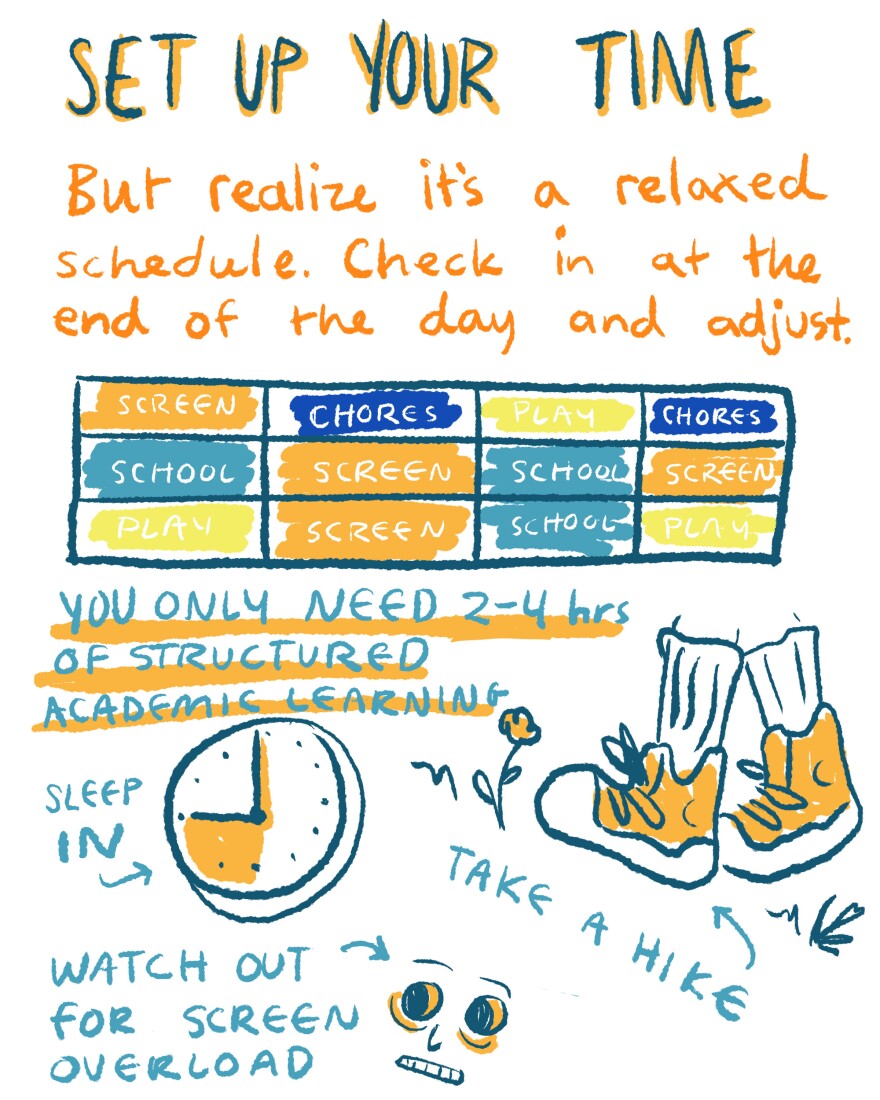 SET UP YOUR TIME
But realize it's a relaxed
schedule. Check in at the
end of the day and adjust.
SCREEN CHORES PLAY CHORES
SCHOOL SCREEN SCHOOL SCREEN
PLAY SCREEN SCHOOL PLAY
YOU ONLY NEED 2-4 hrs
OF STRUCTURED
ACADEMIC LEARNING
SLEEP
IN
TAKE A HIKE
WATCH OUT
FOR SCREEN
OVERLOAD